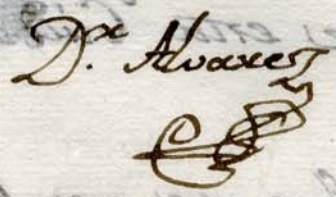 D.ͬ Alvarez